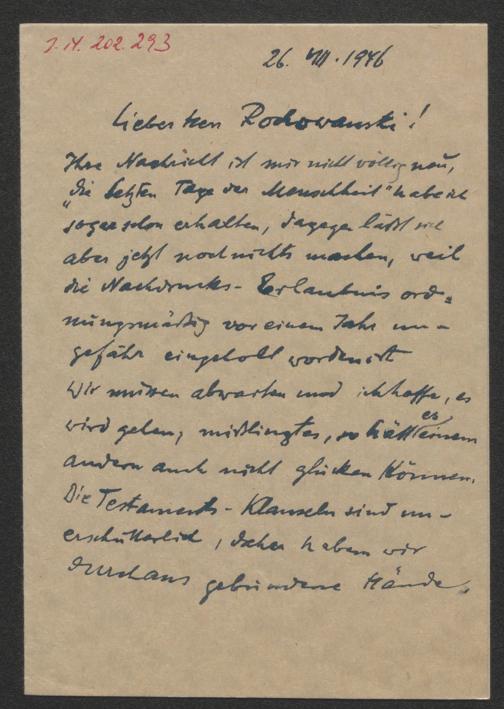 I.N. 202.293
26. VIII. 1946
Lieber Herr Rodowanski!
Ihre Nachricht ist mir nicht völlig neu,
„die letzten Tage der Menschheit" habe ich
sogar schon erhalten, dagegen läßt sich
aber jetzt noch nichts machen, weil
die Nachdrucks-Erlaubnis ord=
nungsmäßig vor einem Jahr un-
gefähr eingeholt worden ist
Wir müssen abwarten und ich hoffe, es
wird gehen; mißlingt es, so hätt es einem
andern auch nicht glücken können.
Die Testaments-Klauseln sind un-
erschütterlich, daher haben wir
durchaus gebundene Hände.